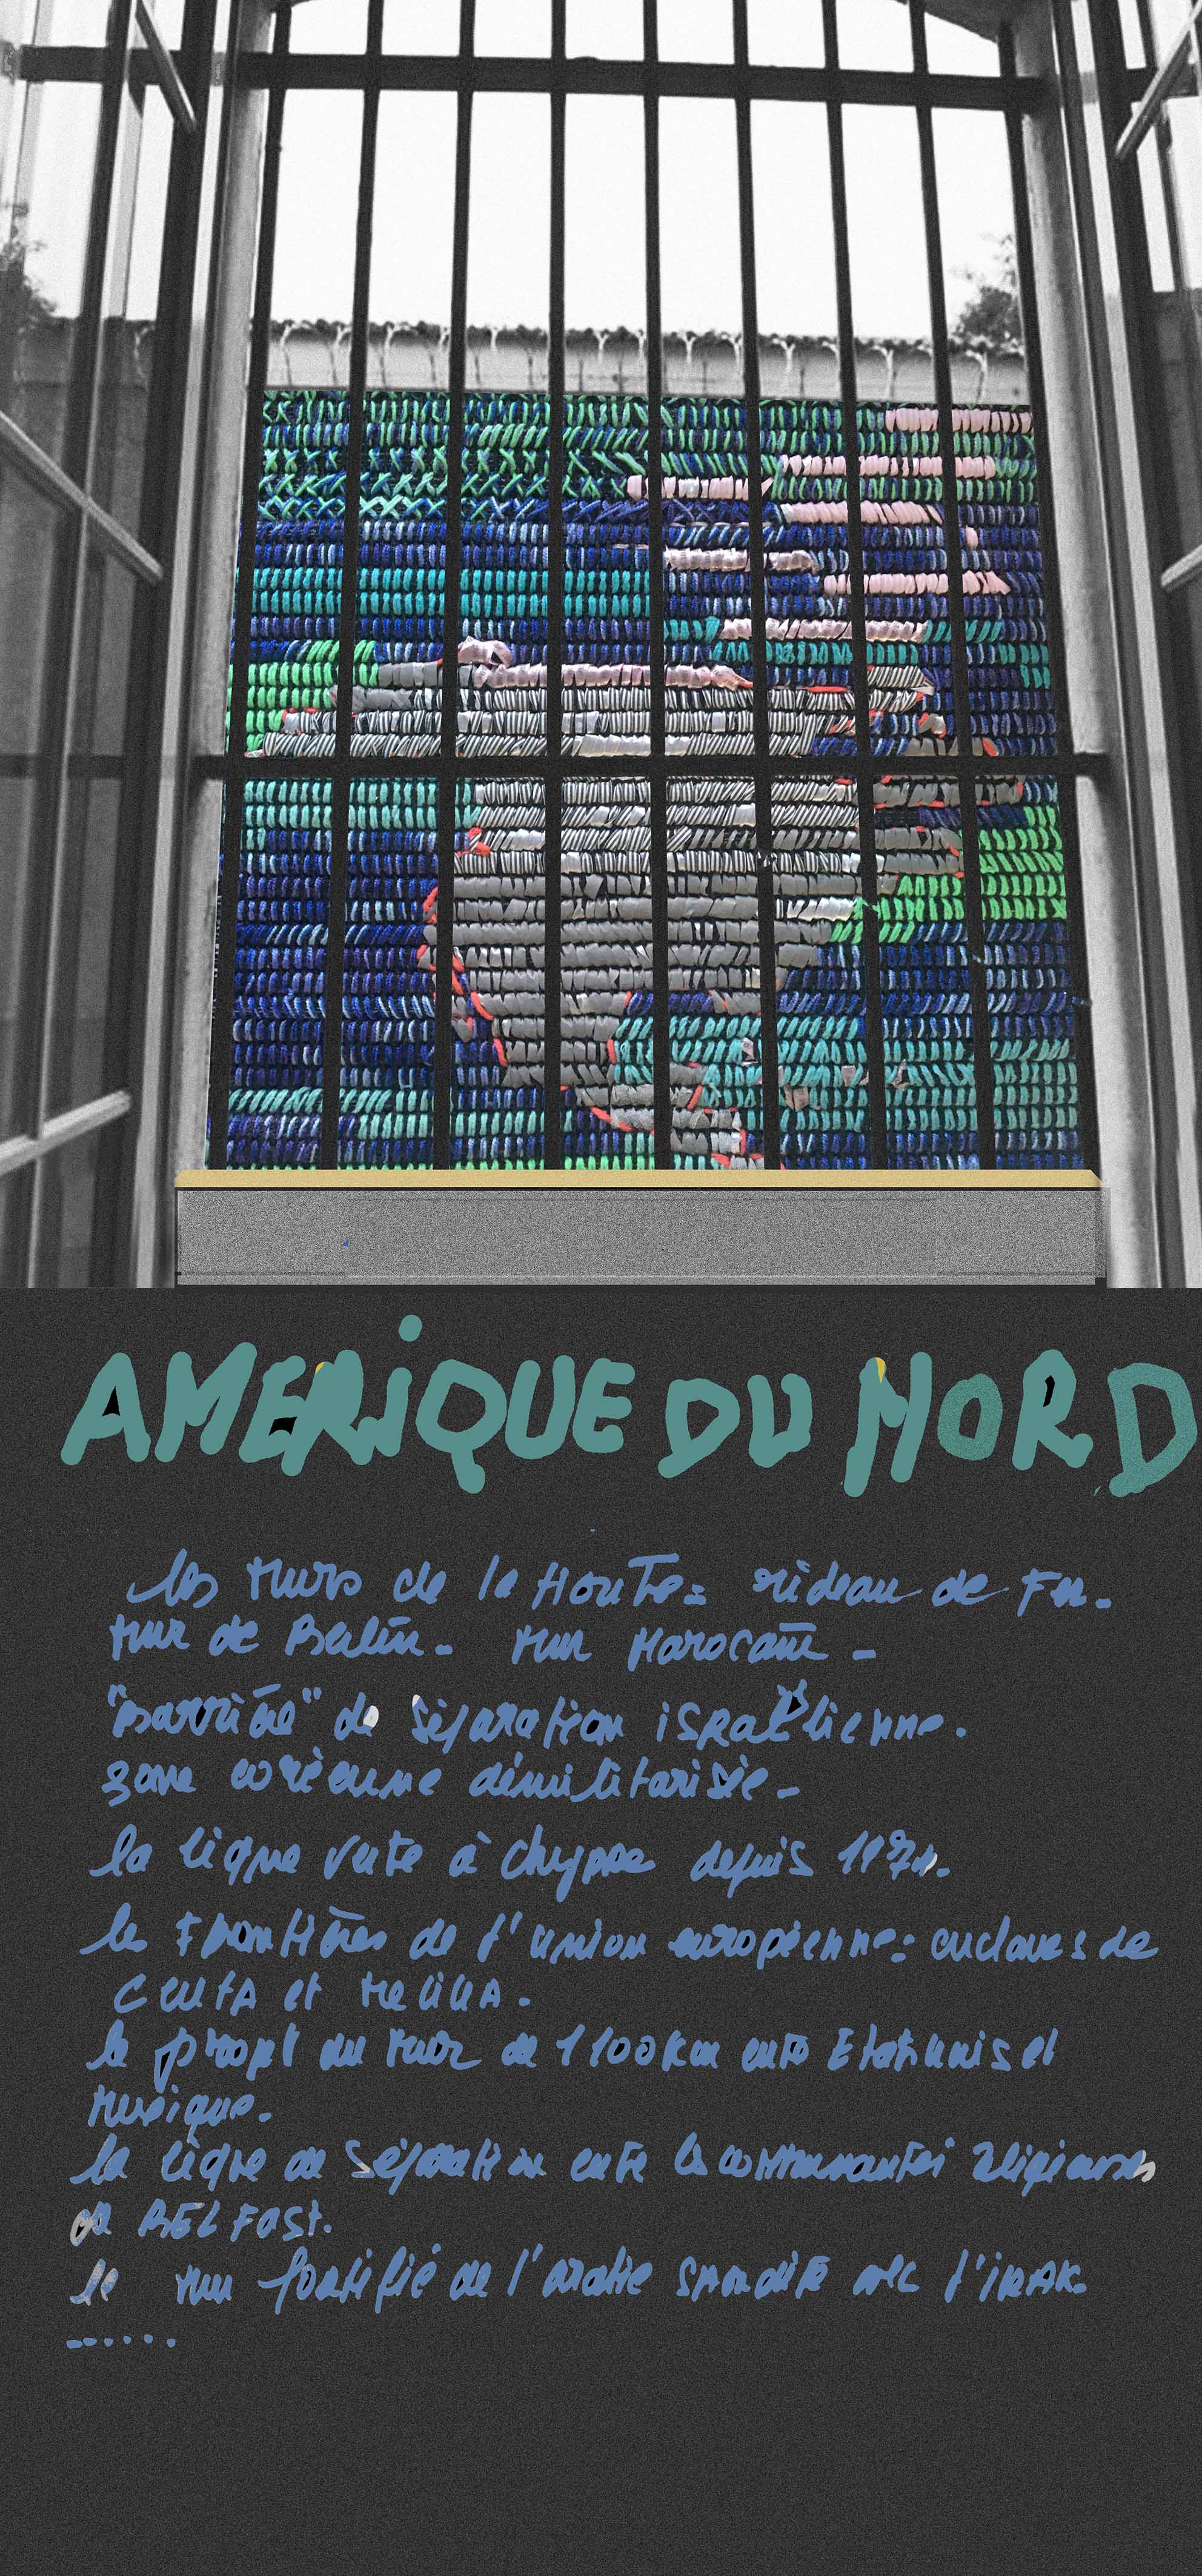 AMERiQUE DU NORD
les murs de la Honte: rideau de Fer.
mur de Berlin. mur Marocain -
"barrière" de séparation israëlienne.
zone coréenne démilitarisée -
la ligne verte à Chypre depuis 1974.
les Frontières de l'union européenne: enclaves de
CEUTA et Melilla.
le projet du mur de 1100km entre Etats unis et
Mexique.
la ligne de séparation entre les communautés religieuses
de BELFAST.
le mur fortifié de l'arabie saoudite avec l'iRAK.
......